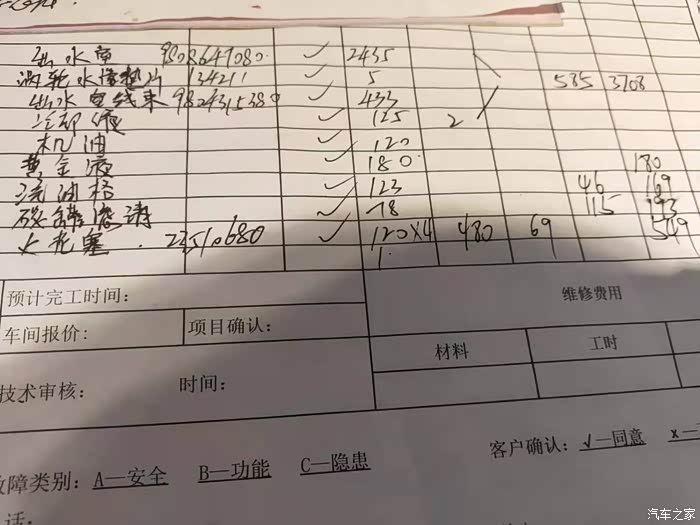 出水室 9808647080 ✓ 2435
涡轮水管垫片 134211 ✓ 5 535 3708
出水电线束 9824315380 ✓ 433
冷却液 ✓ 125 2
机油 ✓ 120
黄金液 ✓ 180 180
汽油格 ✓ 123 46 169
✓ 78 115 193
火花塞 ✓ 120×4 480 69 549
预计完工时间:
维修费用
车间报价: 项目确认:
材料 工时
技术审核: 时间:
客户确认: √—同意
故障类别: A—安全 B—功能 C—隐患
话:
汽车之家